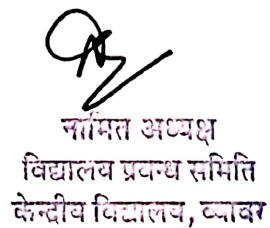 नामित अध्यक्ष
विद्यालय प्रबन्ध समिति
केन्द्रीय विद्यालय, ब्यावर